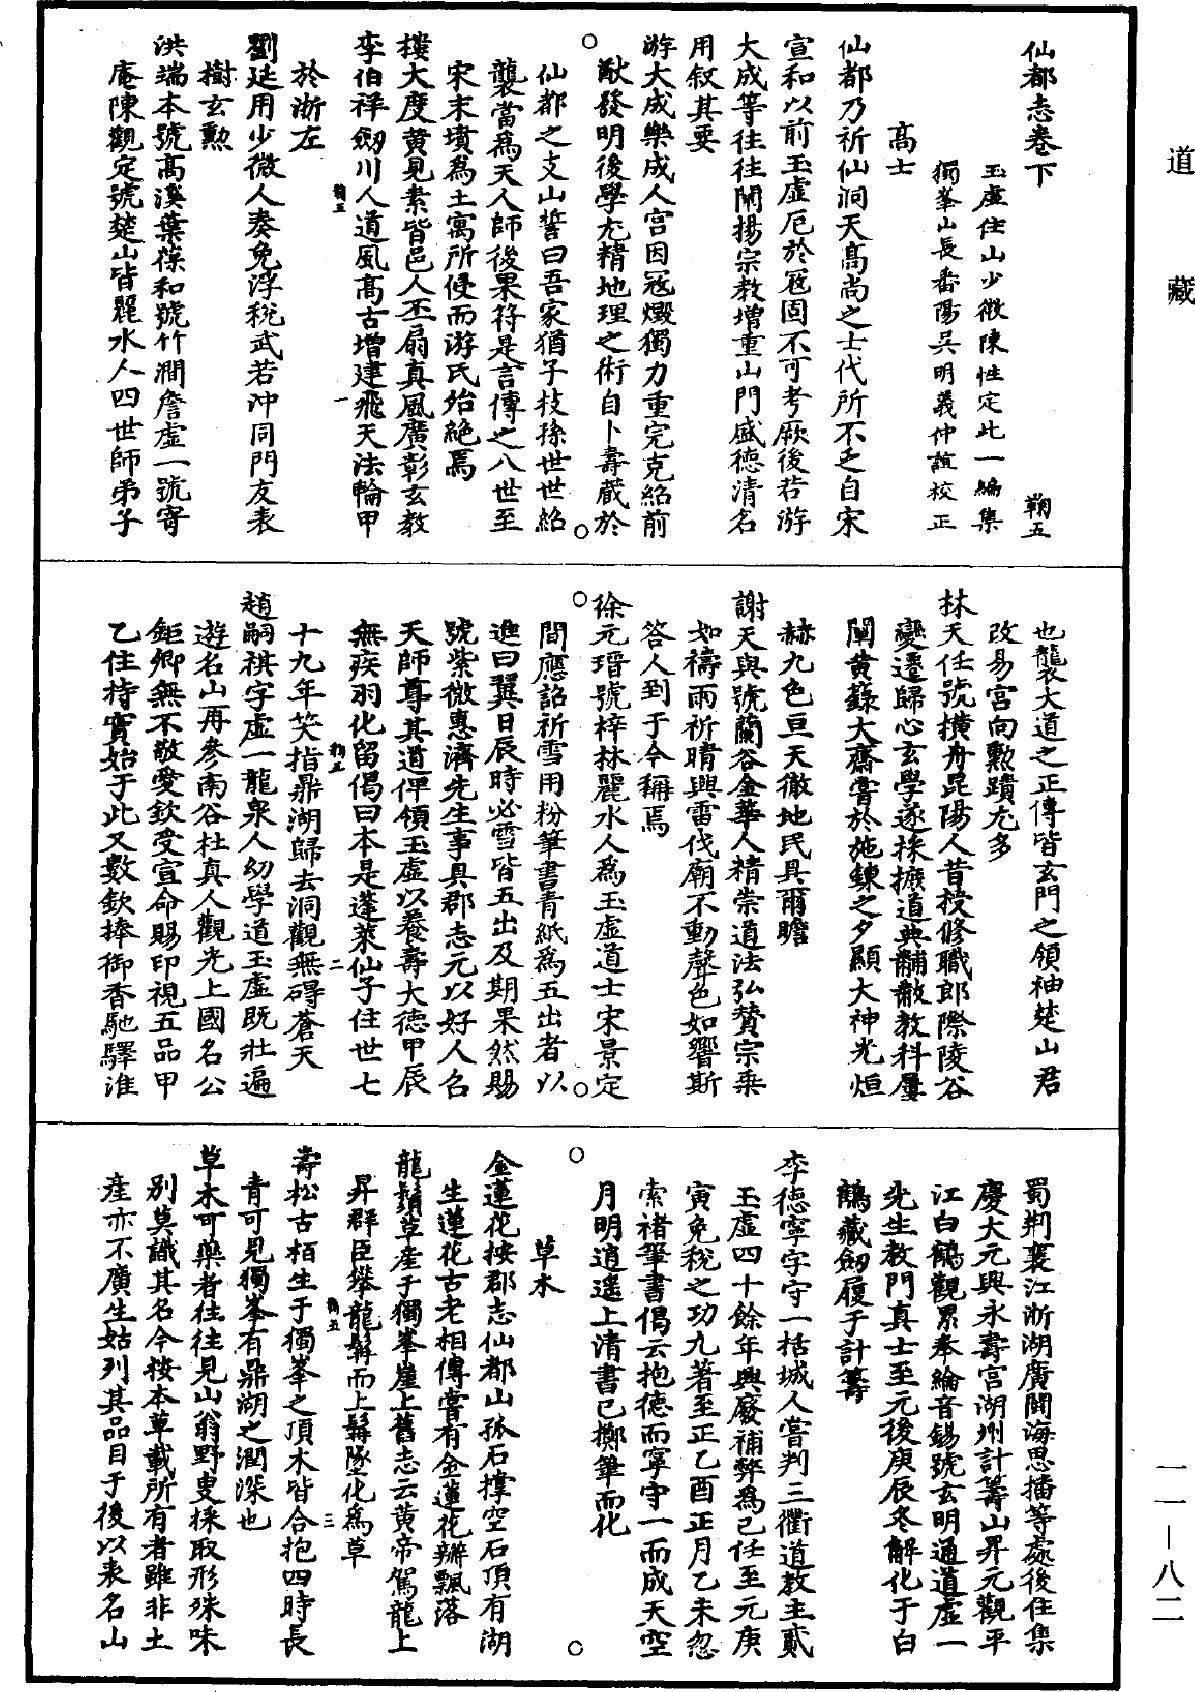 道藏
仙都志卷下
鞠五
玉虛住山少微陳性定此一編集
獨峯山長番陽吳明義仲誼校正
高士
仙都乃祈仙洞天高尚之士代所不乏自宋
宣和以前玉虛厄於寇固不可考厥後若游
大成等往往闡揚宗教增重山門盛德清名
用叙其要
游大成樂成人宫因寇燬獨力重完克紹前
猷發明後學尤精地理之術自卜壽藏於
仙都之支山誓曰吾家猶子枝孫世世紹
襲當爲天人師後果符是言傳之八世至
宋末墳爲土寓所侵而游氏始絶焉
樓大度黄見素皆邑人丕扇真風廣彰玄教
李伯祥劒川人道風高古增建飛天法輪甲
鞠五
一
於浙左
劉廷用少微人奏免浮稅武若沖同門友表
樹玄勲
洪端本號高溪葉葆和號竹澗詹虛一號寄
庵陳觀定號楚山皆麗水人四世師弟子
也襲大道之正傳皆玄門之領袖楚山君
改易宫向勲蹟尤多
林天任號横舟昆陽人昔授修職郎際陵谷
變遷歸心玄學遂採摭道典黼黻教科屢
闡黄籙大齋嘗於施鍊之夕顯大神光烜
赫九色亘天徹地民具爾瞻
謝天與號蘭谷金華人精崇道法弘贊宗乘
如禱雨祈晴興雷伐廟不動聲色如響斯
答人到于今稱焉
徐元瑨號梓林麗水人爲玉虛道士宋景定
間應詔祈雪用粉筆書青紙爲五出者以
進曰翼日辰時必雪皆五出及期果然賜
號紫微惠濟先生事具郡志元以好人召
天師尊其道俾領玉虛以養壽大德甲辰
無疾羽化留偈曰本是蓬萊仙子住世七
鞠五
二
十九年笑指鼎湖歸去洞觀無碍蒼天
趙嗣祺字虛一龍泉人幼學道玉虛既壯遍
遊名山再參南谷杜真人觀光上國名公
鉅卿無不敬愛欽受宣命賜印視五品甲
乙住持實始于此又數欽捧御香馳驛淮
蜀荆襄江浙湖廣閩海思播等處後住集
慶大元興永壽宫湖州計籌山昇元觀平
江白鶴觀累奉綸音錫號玄明通道虛一
先生教門真士至元後庚辰冬解化于白
鶴藏劒履于計籌
李德寧字守一括城人嘗判三衢道教主貳
玉虛四十餘年興廢補弊爲己任至元庚
寅免稅之功九著至正乙酉正月乙未忽
索楮筆書偈云抱德而寧守一而成天空
月明逍遥上清書已擲筆而化
草木
金蓮花按郡志仙都山孤石撑空石頂有湖
生蓮花古老相傳嘗有金蓮花瓣飄落
龍鬚草産于獨峯崖上舊志云黄帝駕龍上
昇群臣攀龍髯而上髯墜化爲草
鞠五
三
壽松古栢生于獨峯之頂木皆合抱四時長
青可見獨峯有鼎湖之潤深也
草木可藥者往往見山翁野叟採取形殊味
别莫識其名今按本草載所有者雖非土
産亦不廣生姑列其品目于後以表名山
一一—八二